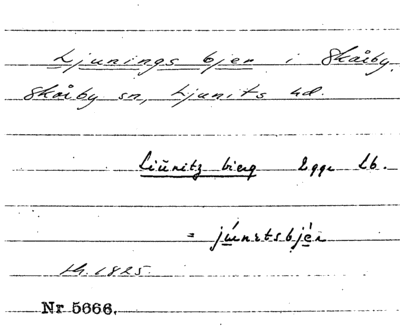 Ljunings bjer i Skårby,
Skårby sn, Ljunits hd.
Liŭnitz bierg Egge Lb.
= júnitsbjér
1825.
Nr 5666.